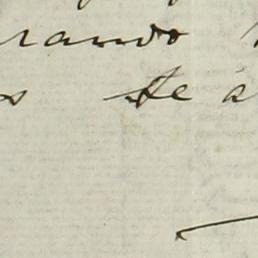 rando
s de a